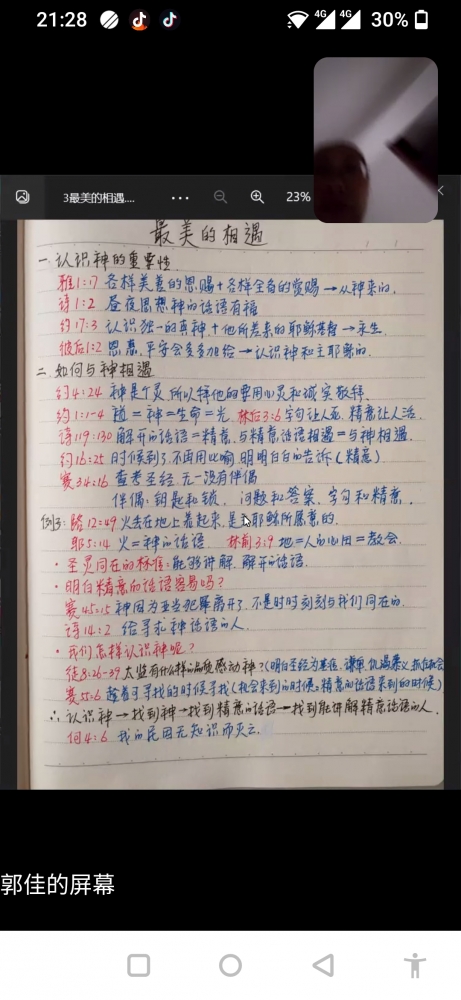 21:28
4G 4G 30%
3最美的相遇.... ... 23%
最美的相遇
一.认识神的重要性.
雅1:17 各样美善的恩赐+各样全备的赏赐→从神来的.
诗1:2 昼夜思想神的话语有福
约17:3 认识独一的真神+他所差来的耶稣基督→永生.
彼后1:2 恩惠,平安会多多加给→认识神和主耶稣的.
二.如何与神相遇
约4:24 神是个灵 所以拜他的要用心灵和诚实敬拜.
约1:1-4 道=神=生命=光. 林后3:6 字句让人死, 精意让人活.
诗119:130 解开的话语=精意.与精意话语相遇=与神相遇.
约16:25 时候到了不再用比喻 明明白白的告诉(精意)
赛34:16 查考圣经.无一没有伴偶
伴偶:钥匙和锁, 问题和答案.字句和精意.
例子:路12:49 火丢在地上着起来,是主耶稣所愿意的.
耶5:14 火=神的话语. 林前3:9 地=人的心田=教会.
·圣灵同在的标准:能够讲解.解开的话语.
·明白精意的话语容易吗?
赛45:15 神因为亚当犯罪离开了.不是时时刻刻与我们同在的.
诗14:2 给寻求神话语的人.
·我们怎样认识神呢?
徒8:26-39 太监有什么样的品质感动神?(明白圣经为基准.谦卑.饥渴慕义.抓住机会
赛55:6 趁着可寻找的时候寻找(机会来到的时候=精意的话语来到的时候)
∴认识神→找到神→找到精意的话语→找到能讲解精意话语的人.
何4:6 我的民因无知识而灭亡.
郭佳的屏幕